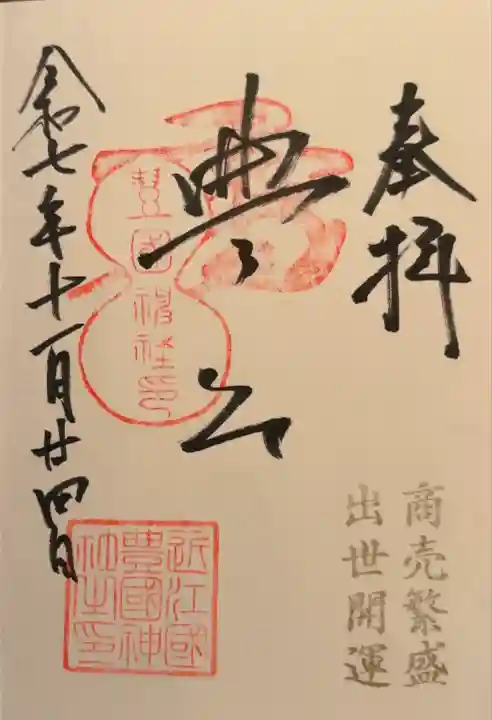 奉拝
商売繁盛
出世開運
豊公
豊國神社印
近江國
豊國神
社之印
令和七年十一月廿四日